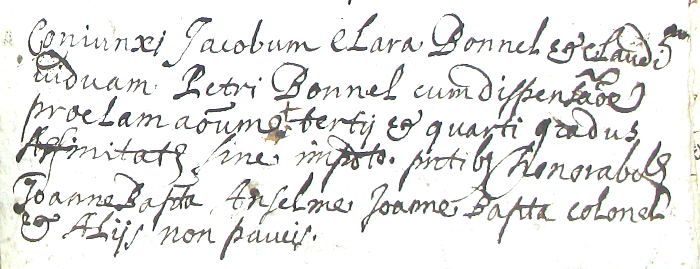 Coniunxi Jacobum Clara Bonnel & Claudiam
viduam Petri Bonnel cum dispensãõe
proclamaõum & tertij & quarti gradus
Affinitatis sine impõto. pñtibus Honorabos
Joanne Bapta Anselme Joanne Bapta colonel
& Alijs non paucis.